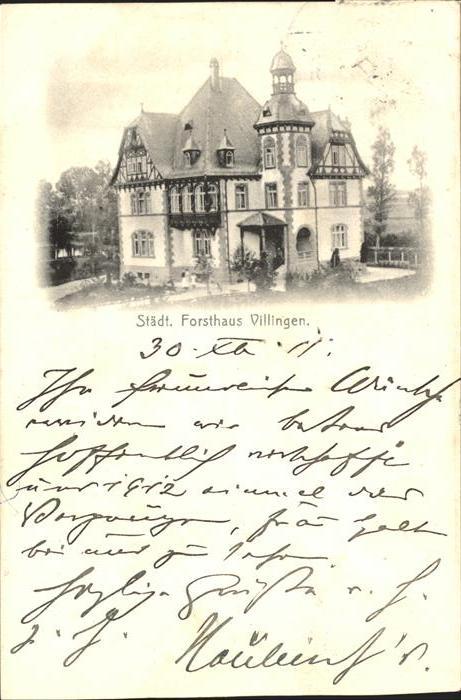 Städt. Forsthaus Villingen.
30. XII. 11.
Ihre freundlichen Wünsche
erwidern wir bestens
hoffentlich verschafft
uns 1912 einmal das
Vergnügen, Sie
bei uns zu sehen
Herzliche Grüße v. H.
z. H.